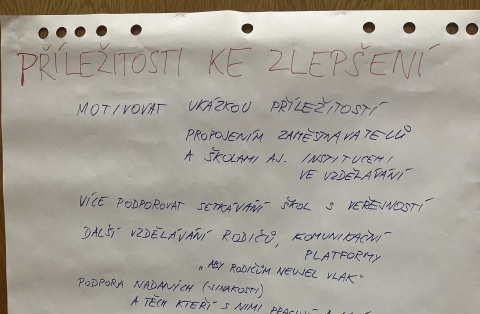 PŘÍLEŽITOSTI KE ZLEPŠENÍ
MOTIVOVAT UKÁZKOU PŘÍLEŽITOSTÍ
PROPOJENÍM ZAMĚSTNAVATELŮ
A ŠKOLAMI AJ. INSTITUCEMI
VE VZDĚLÁVÁNÍ
VÍCE PODPOROVAT SETKÁVÁNÍ ŠKOL S VEŘEJNOSTÍ
DALŠÍ VZDĚLÁVÁNÍ RODIČŮ, KOMUNIKAČNÍ
PLATFORMY
„ABY RODIČŮM NEUJEL VLAK"
PODPORA NADANÝCH (JINAKOSTI)
A TĚCH KTEŘÍ S NIMI